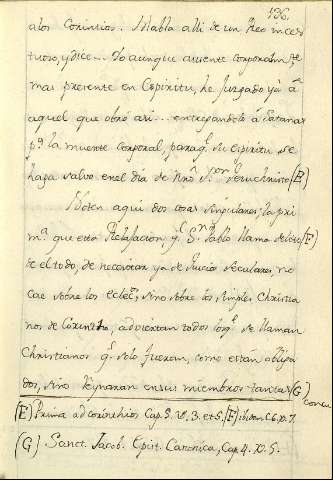 196.
alos Corintios. Habla alli de un Reo inces
tuoso, y dice... Yo aunque ausente corporalmte
mas presente en Espiritu, he Juzgado ya â
aquel que obró asi... entregandolo â Satanas
pa la muerte corporal, paraq su espiritu se
haga salvo en el dia de Nro Sor Jesuchristo (E)
Noten aqui dos cosas singulares; la pri
mra que esta Relajacion q Sn Pablo llama delito (F)
de el todo, de necesitar ya de Juicios seculares, no
cae sobre los eclecos, sino sobre los simples Christia
nos de Corinto, adviertan todos los q se llaman
Christianos q solo fueran, como están obliga
dos, sino Reynaran en sus miembros tantas (G)
concu
(E) Prima ad corinthios Cap. 5. V. 3. et 5. (F) ibidem C. 6. V. 7.
(G) Sanct. Jacob. Epist. Canonica, Cap. 4. V. 5.